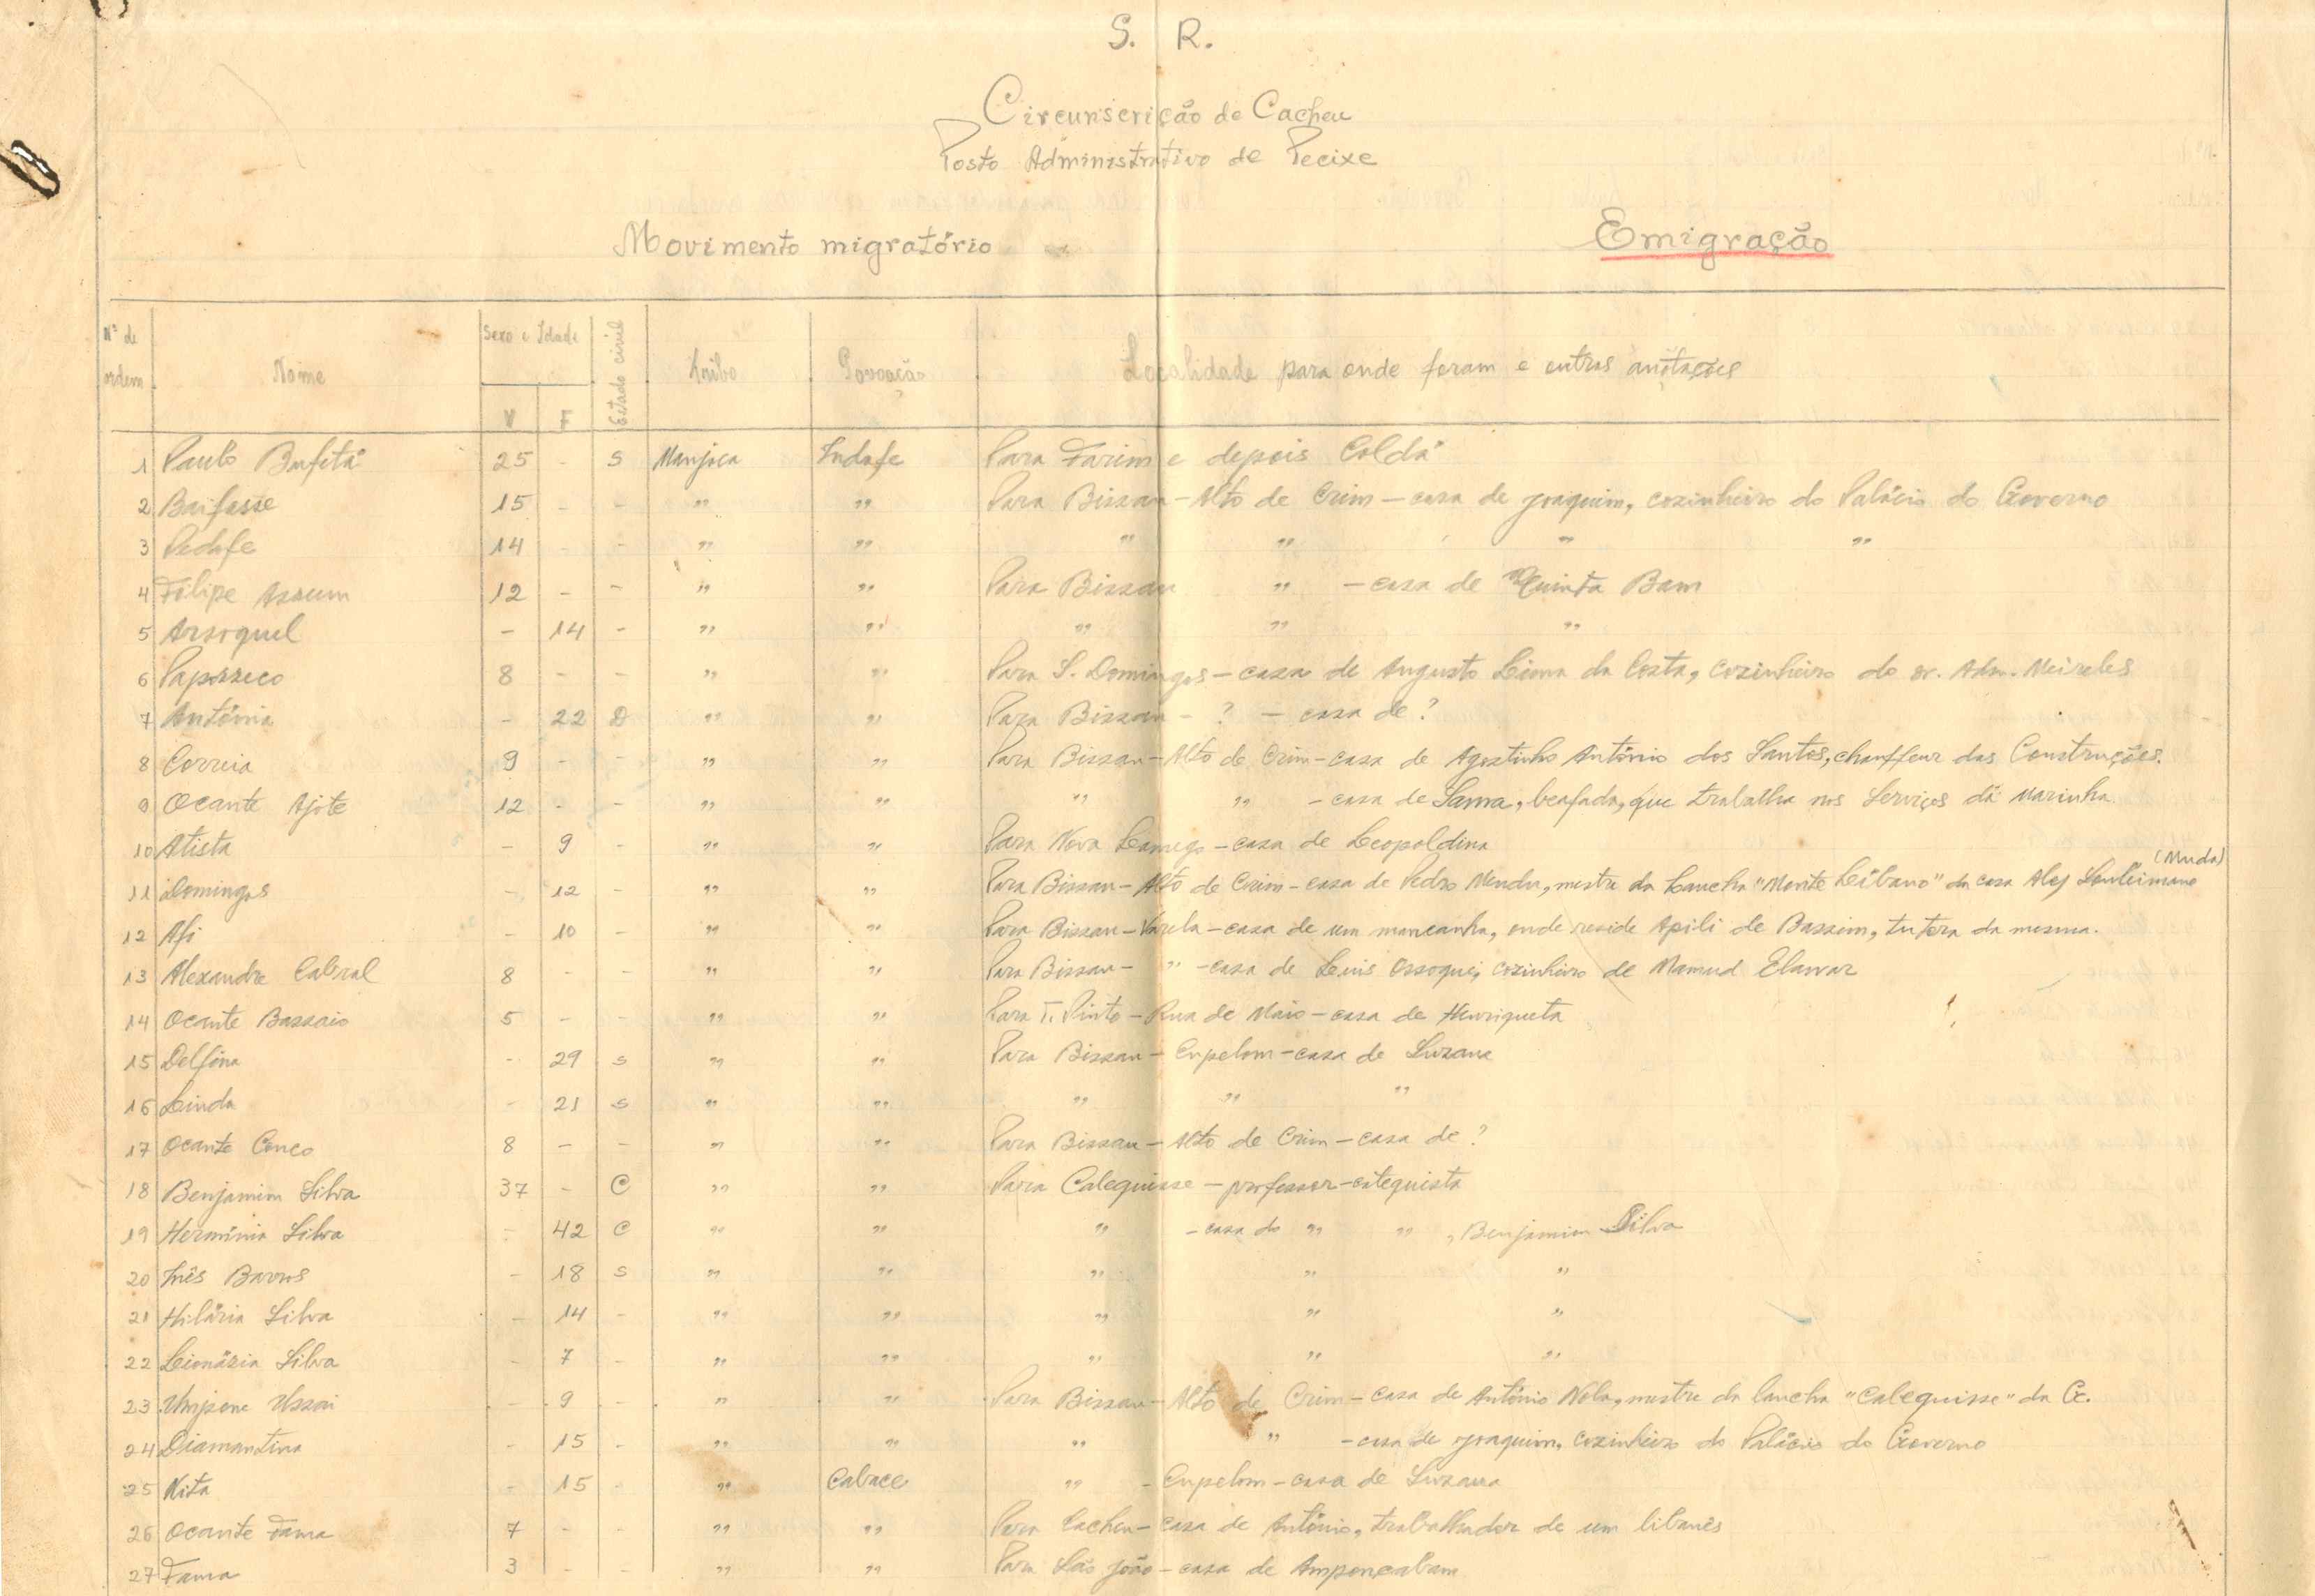 S. R.
Circunscrição de Cacheu
Posto Administrativo de Pecixe
Movimento migratório
Emigração
Nº de ordem Nome Sexo e Idade V F Estado civil Tribo Povoação Localidade para onde foram e outras anotações
1 Paulo Bufetá 25 - S Manjaca Indafe Para Farim e depois Coldá
2 Baifasse 15 - - " " Para Bissau - Alto de Crim - casa de Joaquim, cozinheiro do Palácio do Governo
3 Pedafe 14 - - " " " " " "
4 Filipe Assum 12 - - " " Para Bissau " - casa de Quinta Bam
5 Arsoquel - 14 - " " " " "
6 Paposseco 8 - - " " Para S. Domingos - casa de Augusto Lima da Costa, cozinheiro do sr. Adm. Meireles
7 Antónia - 22 D " " Para Bissau - ? - casa de ?
8 Correia 9 - - " " Para Bissau - Alto de Crim - casa de Agostinho António dos Santos, chauffeur das Construções.
9 Ocante Ajote 12 - - " " " " - casa de Sama, beafada, que trabalha nos Serviços dá Marinha
10 Atista - 9 - " " Para Nova Lamego - casa de Leopoldina
11 Domingas - 12 - " " Para Bissau - Alto de Crim - casa de Pedro Mendu, mestre da Lancha "Monte Líbano" da casa Aly Souleimane (Muda)
12 Afi - 10 - " " Para Bissau - Varela - casa de um mancanha, onde reside Apili de Bassim, tutora da mesma.
13 Alexandre Cabral 8 - - " " Para Bissau - " - casa de Luis Ossoqui, cozinheiro de Mamud Elawar
14 Ocante Bassaio 5 - - " " Para T. Pinto - Rua de Maio - casa de Henriqueta
15 Delfina - 29 S " " Para Bissau - Cupelom - casa de Suzana
16 Linda - 21 S " " " " "
17 Ocante Conco 8 - - " " Para Bissau - Alto de Crim - casa de ?
18 Benjamim Silva 37 - C " " Para Calequisse - professor-catequista
19 Hermínia Silva - 42 C " " " - casa do " " , Benjamim Silva
20 Inês Barros - 18 S " " " " "
21 Hilária Silva - 14 - " " " " "
22 Lionázia Silva - 7 - " " " " "
23 Umpene Ussai - 9 - " " Para Bissau - Alto de Crim - casa de António Nola, mestre da lancha "Calequisse" da G.
24 Diamantina - 15 - " " " " - casa de Joaquim, cozinheiro do Palácio do Governo
25 Nita - 15 - " Cabace " - Cupelom - casa de Suzana
26 Ocante Fama 7 - - " " Para Cacheu - casa de António, trabalhador de um libanês
27 Fama 3 - - " " Para São João - casa de Ampencabam